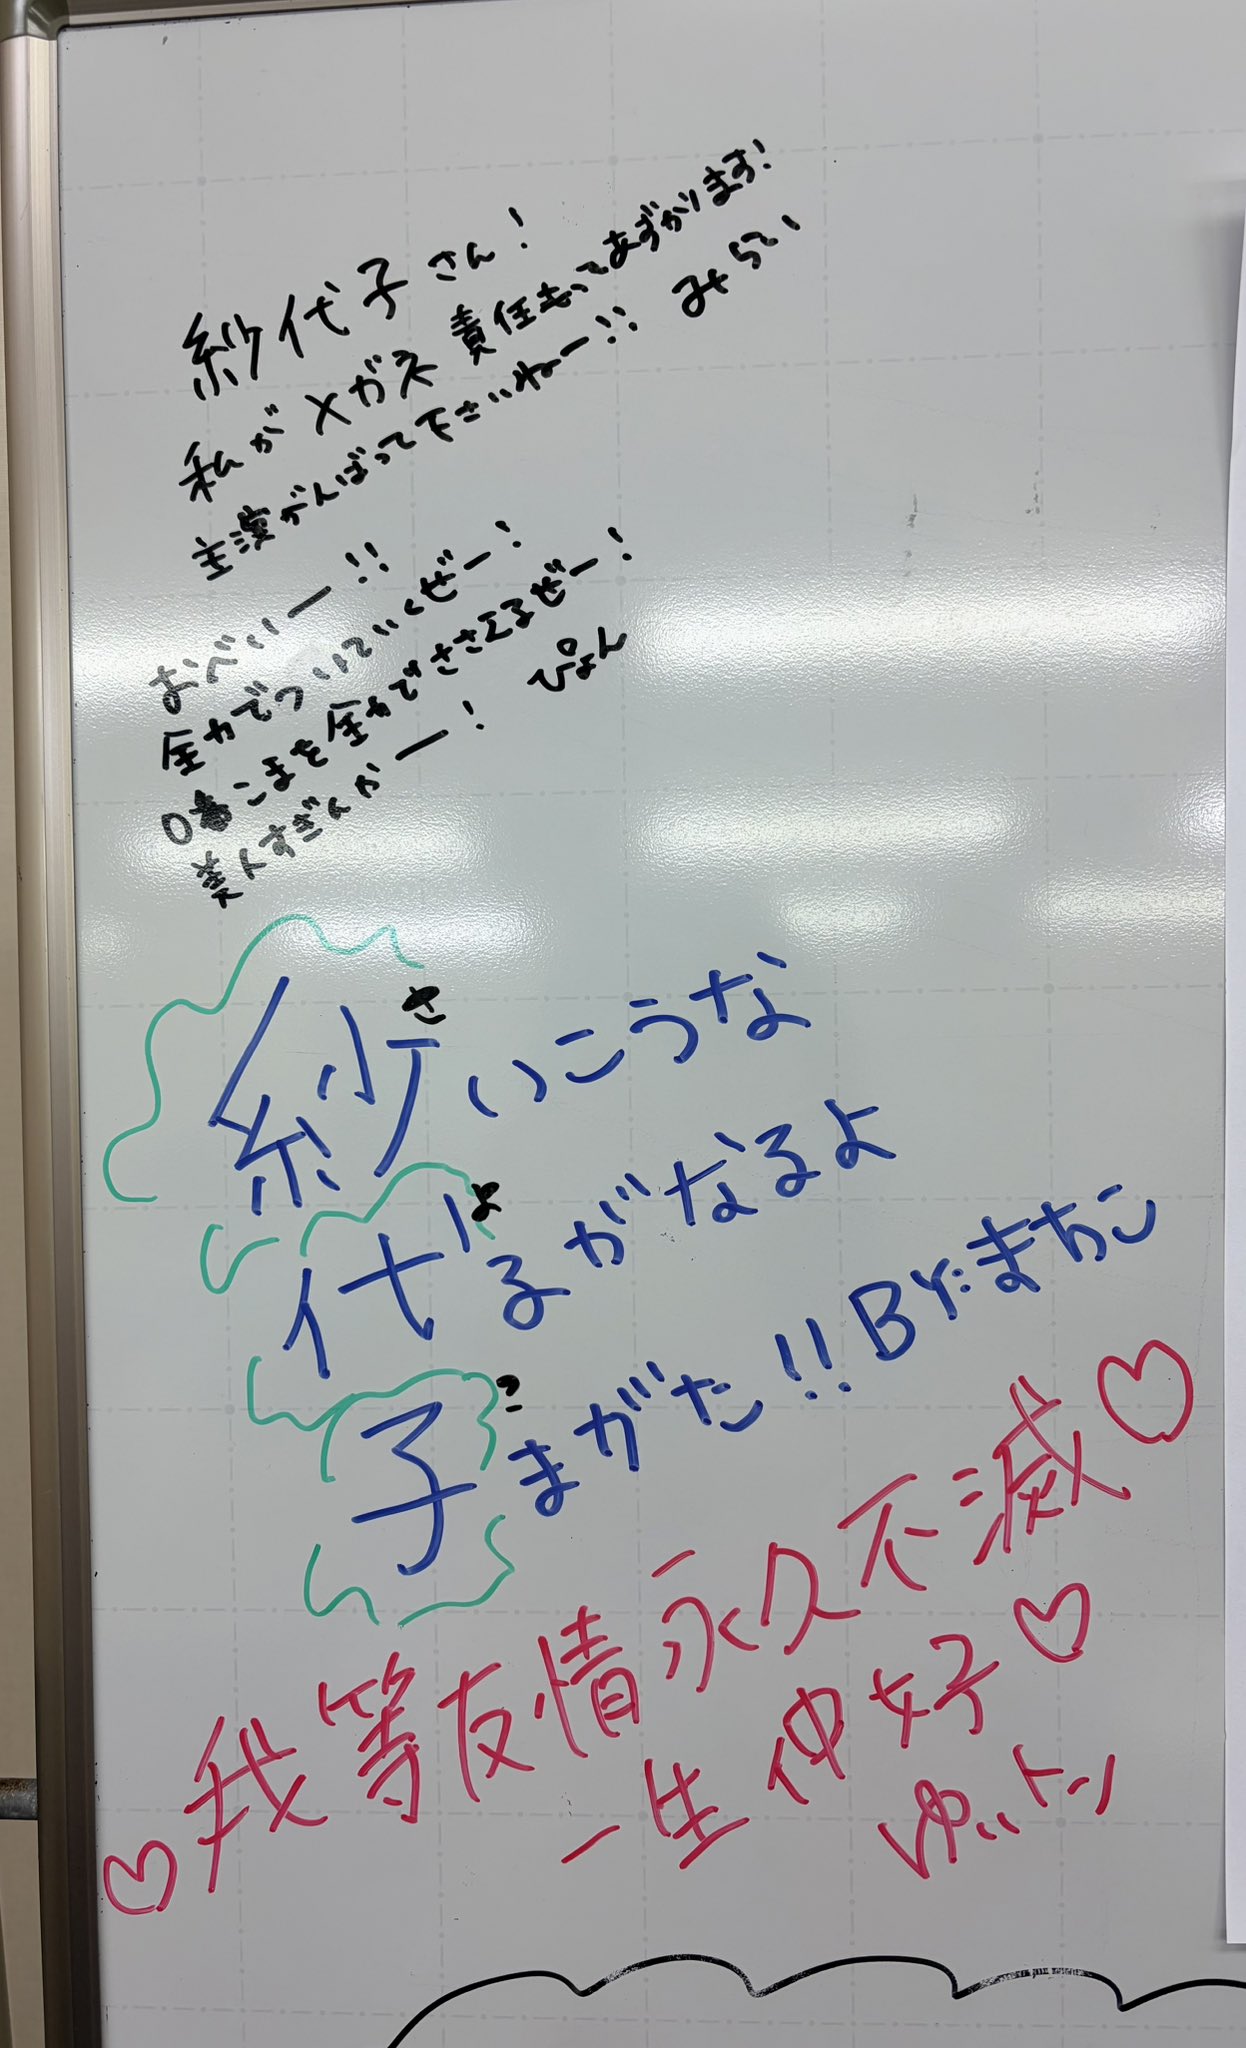 紗代子さん!
私がメガネ責任もってあずかります!
主演がんばって下さいねー!! みらい
おべいー!!
全力でついていくぜー!
0番こまを全力でささえるぜー!
美人すぎんかー! ぴょん
紗さいこうな
代よるがなるよ
子こまがた!! BY:まちこ
♡我等友情永久不滅♡
一生仲好♡
ゆいトン